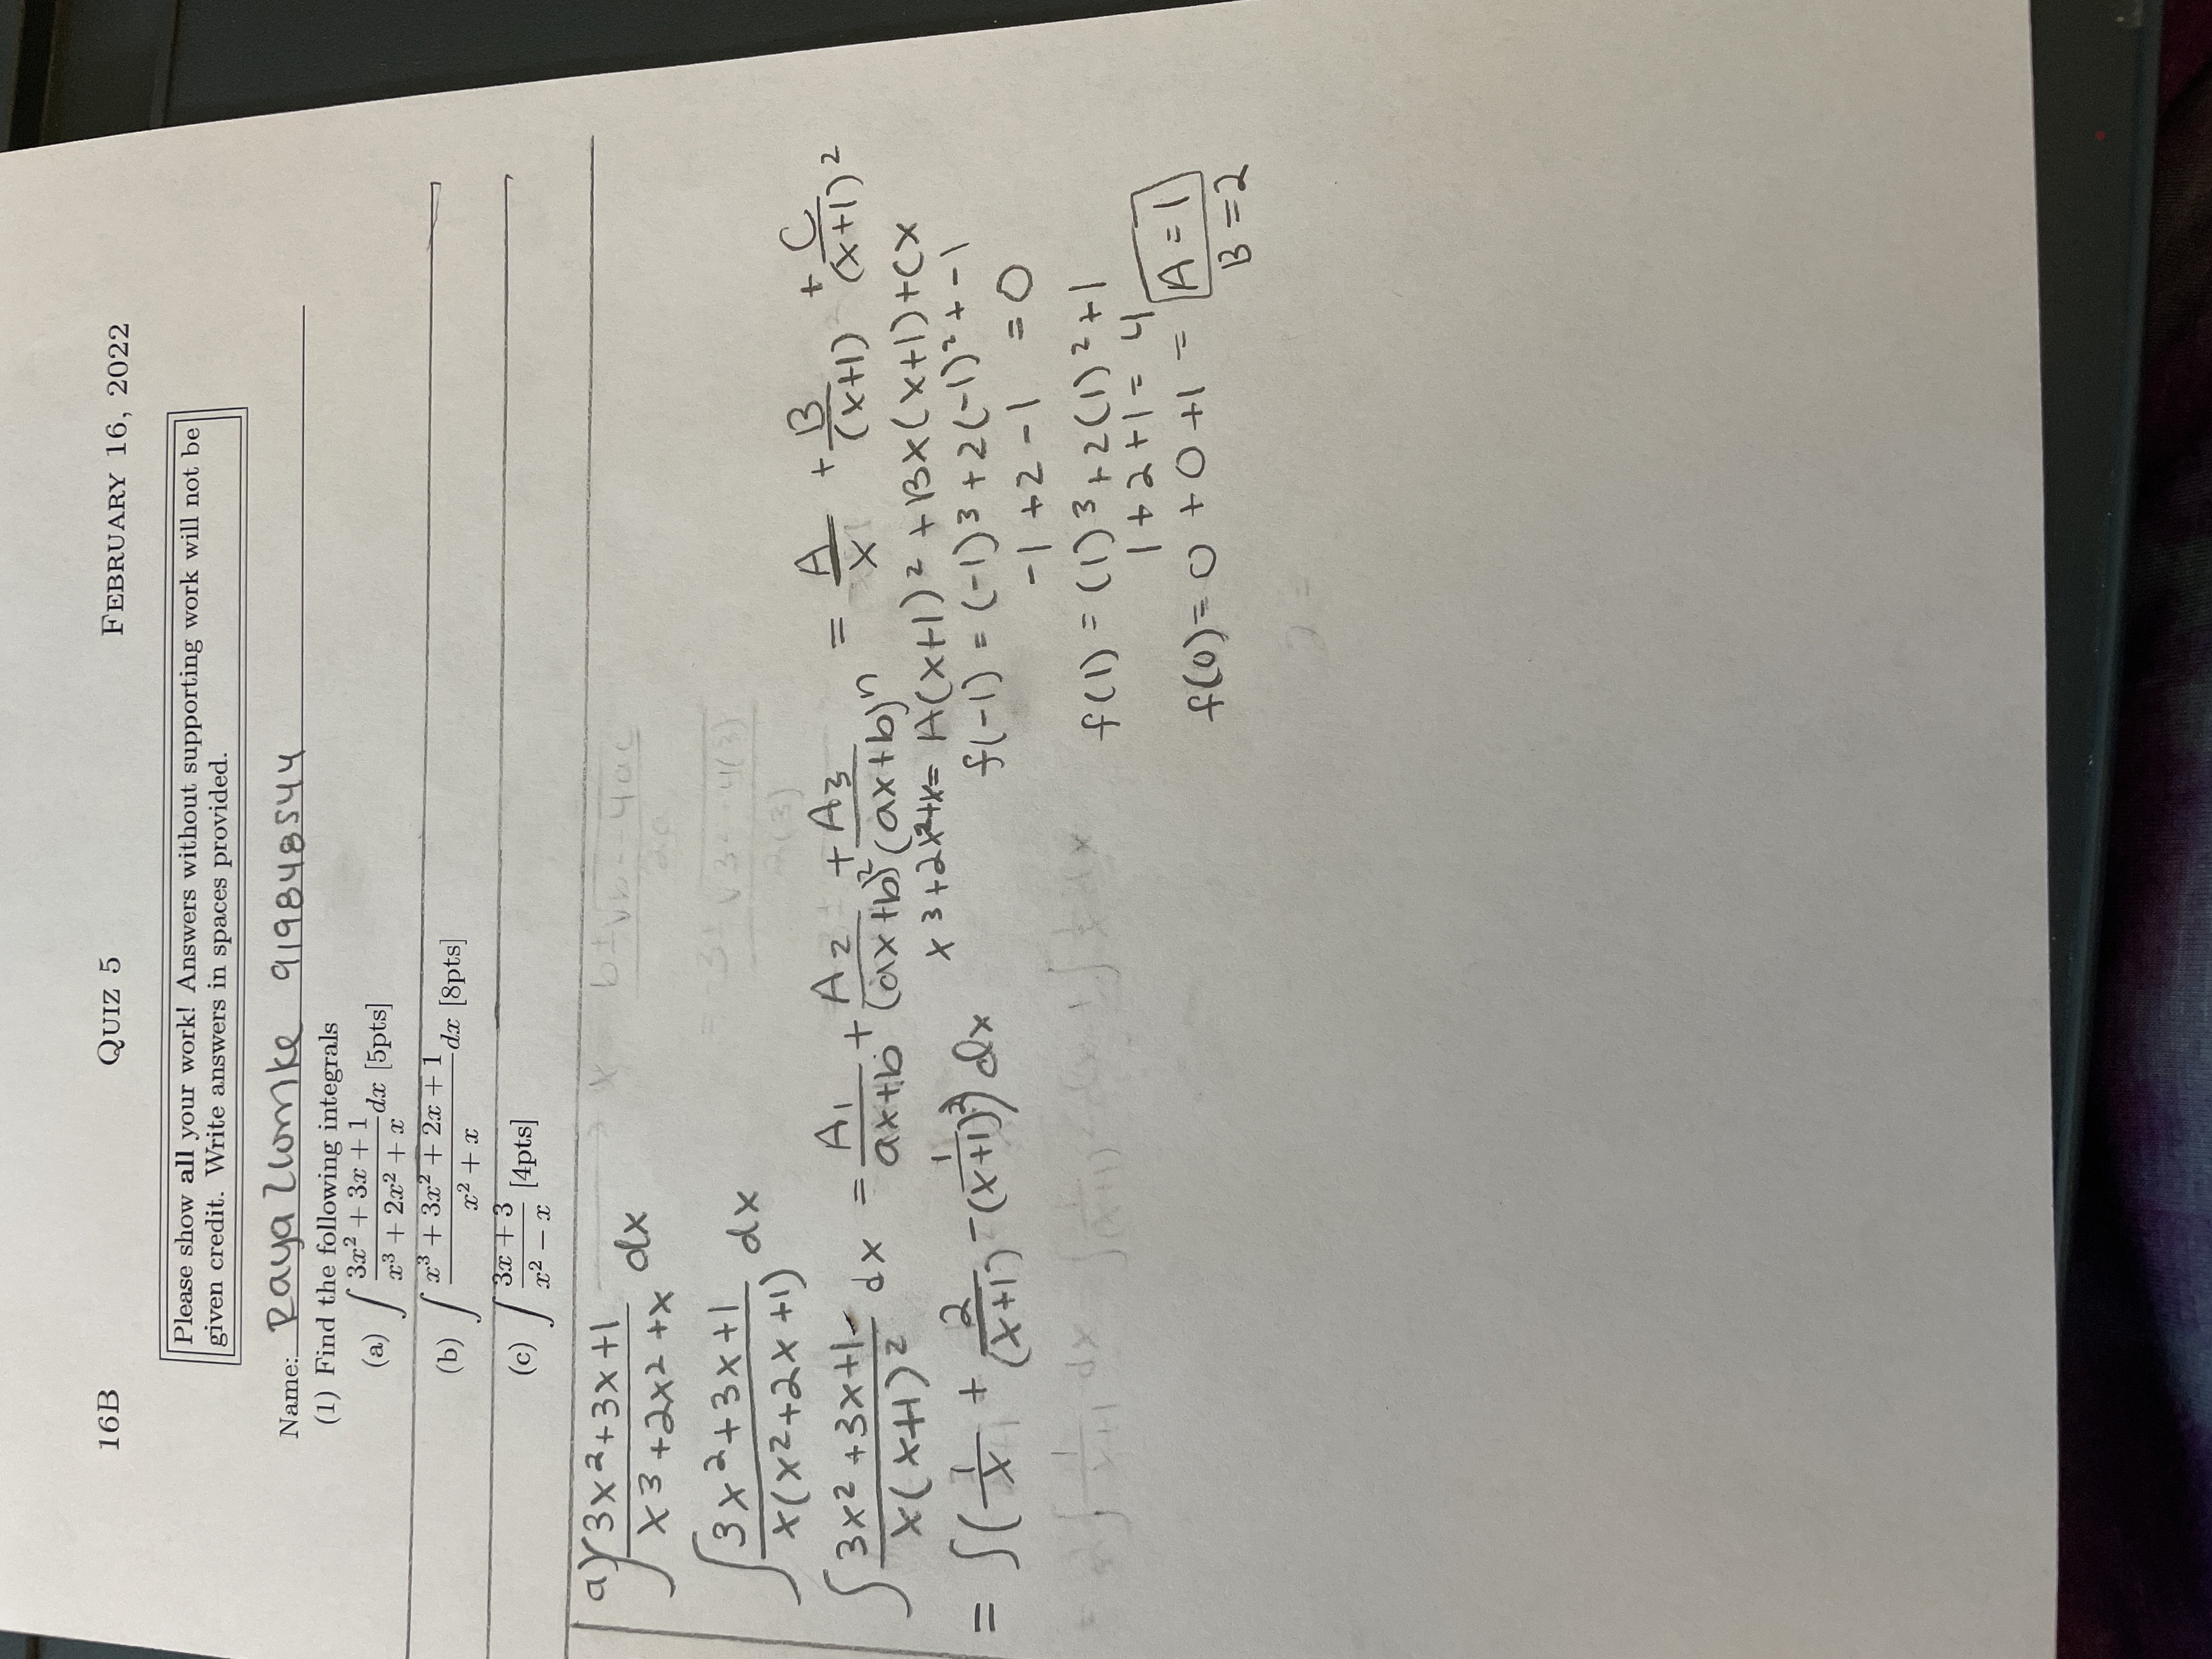 16B QUIZ 5 FEBRUARY 16, 2022
Please show all your work! Answers without supporting work will not be
given credit. Write answers in spaces provided.
Name: Raya Zlomke 919848544
(1) Find the following integrals
(a) ∫ (3x² + 3x + 1)/(x³ + 2x² + x) dx [5pts]
(b) ∫ (x³ + 3x² + 2x + 1)/(x² + x) dx [8pts]
(c) ∫ (3x + 3)/(x² − x) [4pts]
a) ∫ (3x²+3x+1)/(x³+2x²+x) dx
∫ (3x²+3x+1)/(x(x²+2x+1)) dx
∫ (3x²+3x+1)/(x(x+1)²) dx = A₁/(ax+b) + A₂/(ax+b)² + A₃/(ax+b)ⁿ = A/x + B/(x+1) + C/(x+1)²
x³+2x²+x= A(x+1)²+Bx(x+1)+Cx
= ∫(1/x + 2/(x+1) - 1/(x+1)²) dx
f(-1) = (-1)³+2(-1)²+-1
-1+2-1 =0
f(1) = (1)³+2(1)²+1
1+2+1=4
f(0)=0+0+1 = A=1
B=2